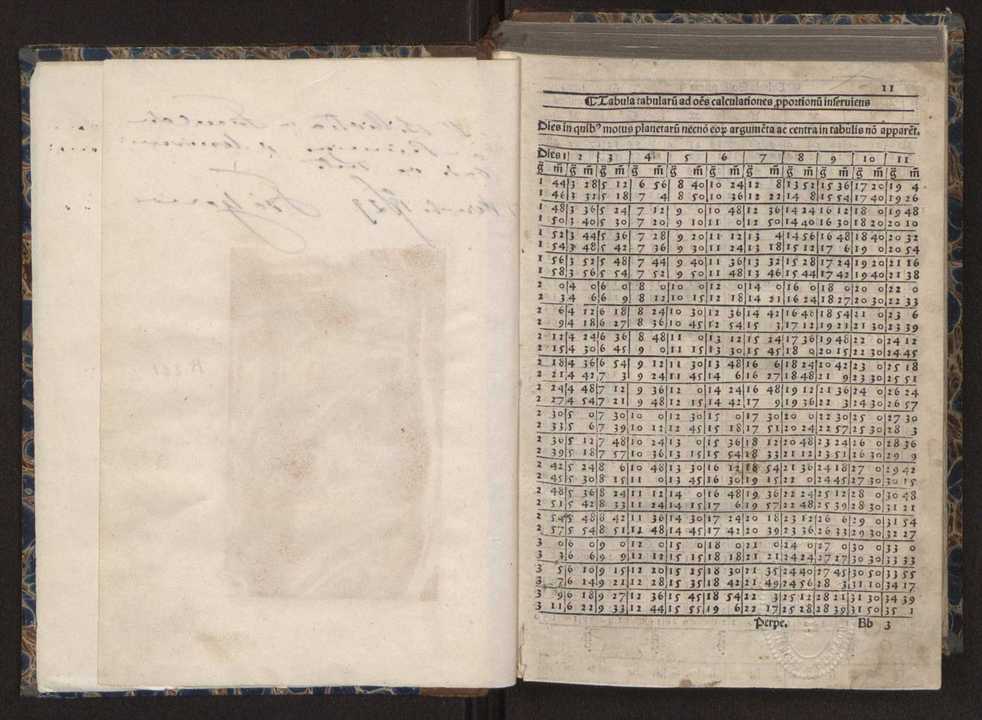 11
☾ Tabula tabularũ ad oẽs calculationes ꝓportionũ inseruiens
Dies in quibꝰ motus planetarũ necnõ eoꝝ argumẽta ac centra in tabulis nõ apparẽt.
Dies 1 2 3 4 5 6 7 8 9 10 11
g̃ m̃ g̃ m̃ g̃ m̃ g̃ m̃ g̃ m̃ g̃ m̃ g̃ m̃ g̃ m̃ g̃ m̃ g̃ m̃ g̃ m̃
1 44 3 28 5 12 6 56 8 40 10 24 12 8 13 52 15 36 17 20 19 4
1 46 3 32 5 18 7 4 8 50 10 36 12 22 14 8 15 54 17 40 19 26
1 48 3 36 5 24 7 12 9 0 10 48 12 36 14 24 16 12 18 0 19 48
1 50 3 40 5 30 7 20 9 10 11 0 12 50 14 40 16 30 18 20 20 10
1 52 3 44 5 36 7 28 9 20 11 12 13 4 14 56 16 48 18 40 20 32
1 54 3 48 5 42 7 36 9 30 11 24 13 18 15 12 17 6 19 0 20 54
1 56 3 52 5 48 7 44 9 40 11 36 13 32 15 28 17 24 19 20 21 16
1 58 3 56 5 54 7 52 9 50 11 48 13 46 15 44 17 42 19 40 21 38
2 0 4 0 6 0 8 0 10 0 12 0 14 0 16 0 18 0 20 0 22 0
2 3 4 6 6 9 8 12 10 15 12 18 14 21 16 24 18 27 20 30 22 33
2 6 4 12 6 18 8 24 10 30 12 36 14 42 16 48 18 54 21 0 23 6
2 9 4 18 6 27 8 36 10 45 12 54 15 3 17 12 19 21 21 30 23 39
2 12 4 24 6 36 8 48 11 0 13 12 15 24 17 36 19 48 22 0 24 12
2 15 4 30 6 45 9 0 11 15 13 30 15 45 18 0 20 15 22 30 24 45
2 18 4 36 6 54 9 12 11 30 13 48 16 6 18 24 20 42 23 0 25 18
2 21 4 42 7 3 9 24 11 45 14 6 16 27 18 48 21 9 23 30 25 51
2 24 4 48 7 12 9 36 12 0 14 24 16 48 19 12 21 36 24 0 26 24
2 27 4 54 7 21 9 48 12 15 14 42 17 9 19 36 21 3 24 30 26 57
2 30 5 0 7 30 10 0 12 30 15 0 17 30 20 0 22 30 25 0 27 30
2 33 5 6 7 39 10 12 12 45 15 18 17 51 20 24 22 57 25 30 28 3
2 36 5 12 7 48 10 24 13 0 15 36 18 12 20 48 23 24 26 0 28 36
2 39 5 18 7 57 10 36 13 15 15 54 18 33 21 12 23 51 26 30 29 9
2 42 5 24 8 6 10 48 13 30 16 12 18 54 21 36 24 18 27 0 29 42
2 45 5 30 8 15 11 0 13 45 16 30 19 15 22 0 24 45 27 30 30 15
2 48 5 36 8 24 11 12 14 0 16 48 19 36 22 24 25 12 28 0 30 48
2 51 5 42 8 33 11 24 14 15 17 6 19 57 22 48 25 39 28 30 31 21
2 54 5 48 8 42 11 36 14 30 17 24 20 18 23 12 26 6 29 0 31 54
2 57 5 54 8 51 11 48 14 45 17 42 20 39 23 36 26 33 29 30 32 27
3 0 6 0 9 0 12 0 15 0 18 0 21 0 24 0 27 0 30 0 33 0
3 3 6 6 9 9 12 12 15 15 18 18 21 21 24 24 27 27 30 30 33 33
3 5 6 10 9 15 12 20 15 25 18 30 21 35 24 40 27 45 30 50 33 55
3 7 6 14 9 21 12 28 15 35 18 42 21 49 24 56 28 3 31 10 34 17
3 9 6 18 9 27 12 36 15 45 18 54 22 3 25 12 28 21 31 30 34 39
3 11 6 22 9 33 12 44 15 55 19 6 22 17 25 28 28 39 31 50 35 1
Perpe. Bb 3